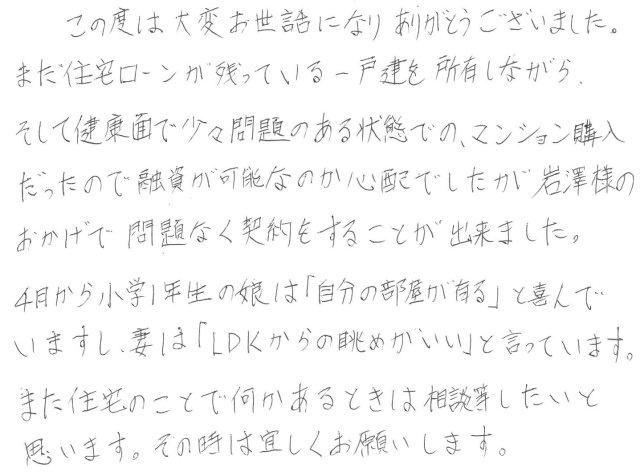 この度は大変お世話になりありがとうございました。
まだ住宅ローンが残っている一戸建を所有しながら、
そして健康面で少々問題のある状態での、マンション購入
だったので融資が可能なのか心配でしたが岩澤様の
おかげで問題なく契約をすることが出来ました。
4月から小学1年生の娘は「自分の部屋が有る」と喜んで
いますし、妻は「LDKからの眺めがいい」と言っています。
また住宅のことで何かあるときは相談等したいと
思います。その時は宜しくお願いします。